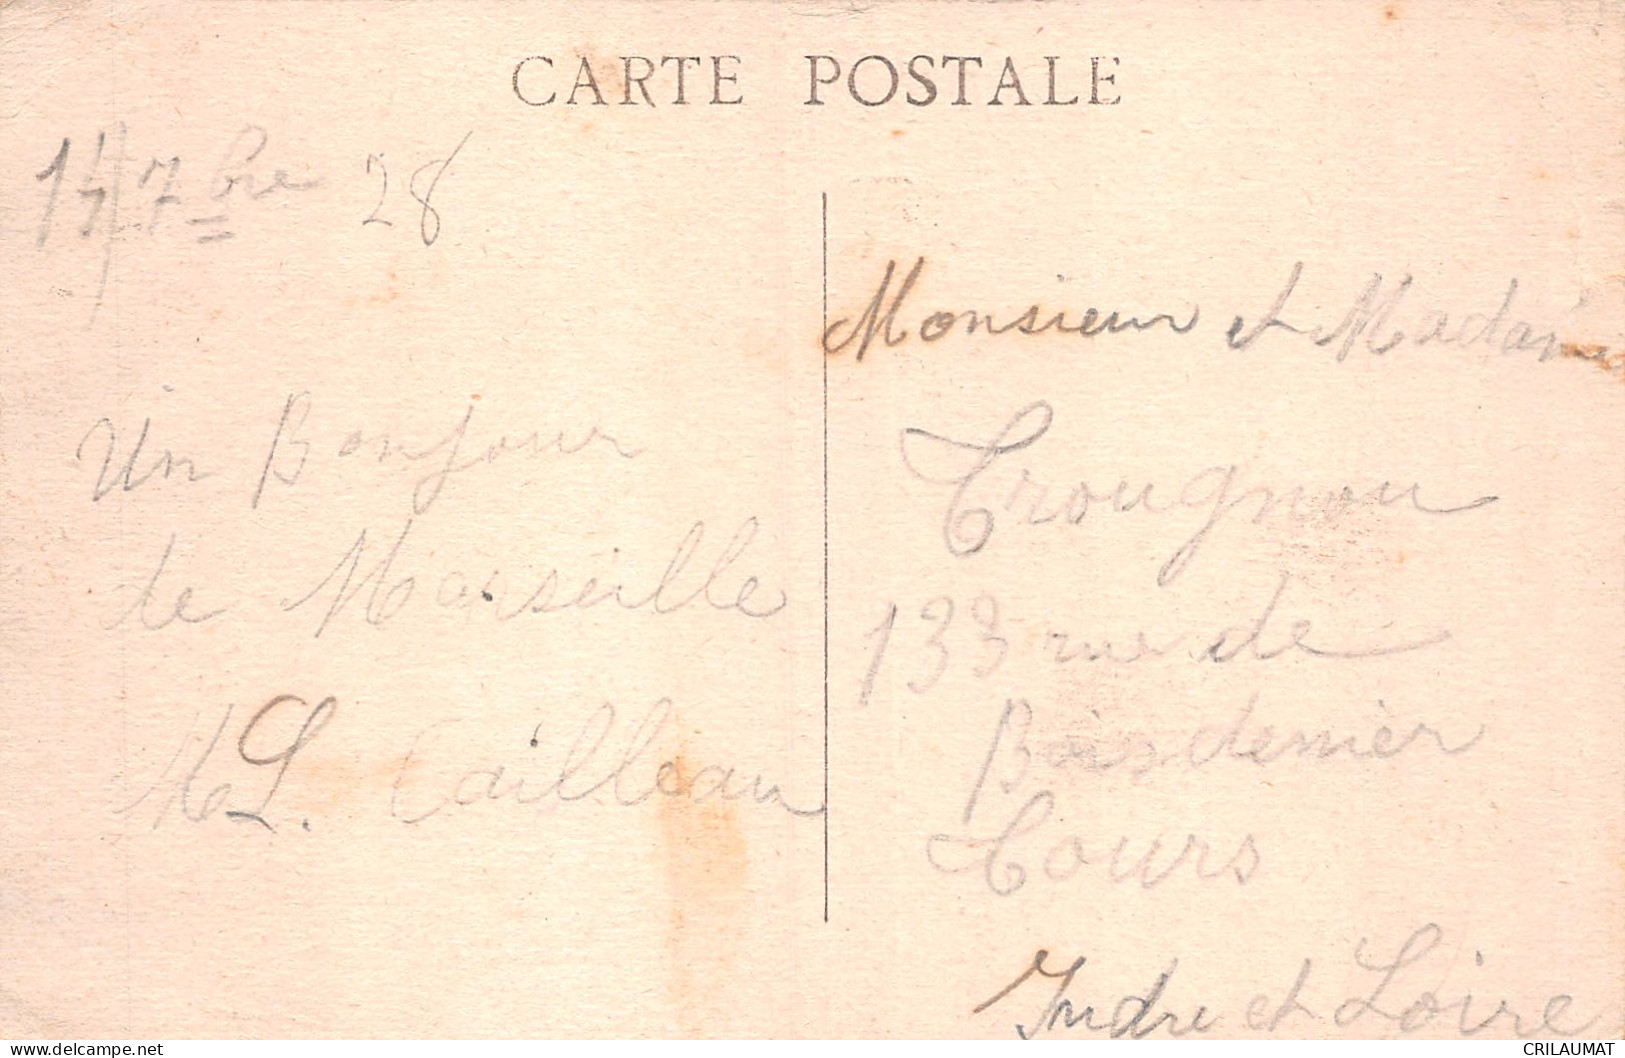 CARTE POSTALE
7bre 28
Un Bonjour
de Marseille
ML. Cailleau
Monsieur et Madame
Trougnou
133 rue de
Boisdenier
Tours
Indre et Loire
CRILAUMAT